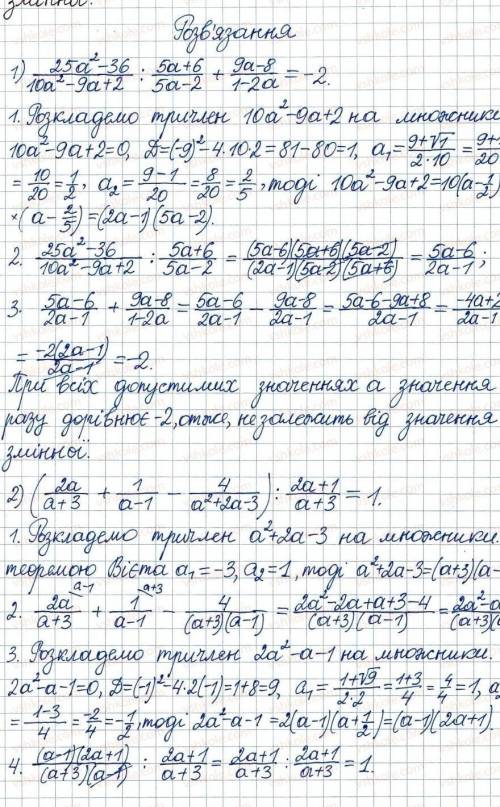 Розв'язання
1) (25a²-36)/(10a²-9a+2) : (5a+6)/(5a-2) + (9a-8)/(1-2a) = -2.
1. Розкладемо тричлен 10a²-9a+2 на множники
10a²-9a+2=0, D=(-9)²-4·10·2=81-80=1, a₁=(9+√1)/(2·10)=(9+1)/20
=10/20=1/2, a₂=(9-1)/20=8/20=2/5, тоді 10a²-9a+2=10(a-1/2)
×(a-2/5)=(2a-1)(5a-2).
2. (25a²-36)/(10a²-9a+2) : (5a+6)/(5a-2) = (5a-6)(5a+6)(5a-2)/(2a-1)(5a-2)(5a+6) = (5a-6)/(2a-1);
3. (5a-6)/(2a-1) + (9a-8)/(1-2a) = (5a-6)/(2a-1) - (9a-8)/(2a-1) = (5a-6-9a+8)/(2a-1) = (-4a+2)/(2a-1)
= -2(2a-1)/(2a-1) = -2.
При всіх допустимих значеннях a значення
разу дорівнює -2, отже, не залежить від значення
змінної.
2) (2a/(a+3) + 1/(a-1) - 4/(a²+2a-3)) : (2a+1)/(a+3) = 1.
1. Розкладемо тричлен a²+2a-3 на множники.
теоремою Вієта a₁=-3, a₂=1, тоді a²+2a-3=(a+3)(a-
2. 2a/(a+3) ^(a-1) + 1/(a-1) ^(a+3) - 4/(a+3)(a-1) = (2a²-2a+a+3-4)/(a+3)(a-1) = (2a²-a
3. Розкладемо тричлен 2a²-a-1 на множники.
2a²-a-1=0, D=(-1)²-4·2(-1)=1+8=9, a₁=(1+√9)/(2·2)=(1+3)/4=4/4=1, a₂
=(1-3)/4=-2/4=-1/2, тоді 2a²-a-1=2(a-1)(a+1/2)=(a-1)(2a+1).
4. (a-1)(2a+1)/(a+3)(a-1) : (2a+1)/(a+3) = (2a+1)/(a+3) : (2a+1)/(a+3) = 1.